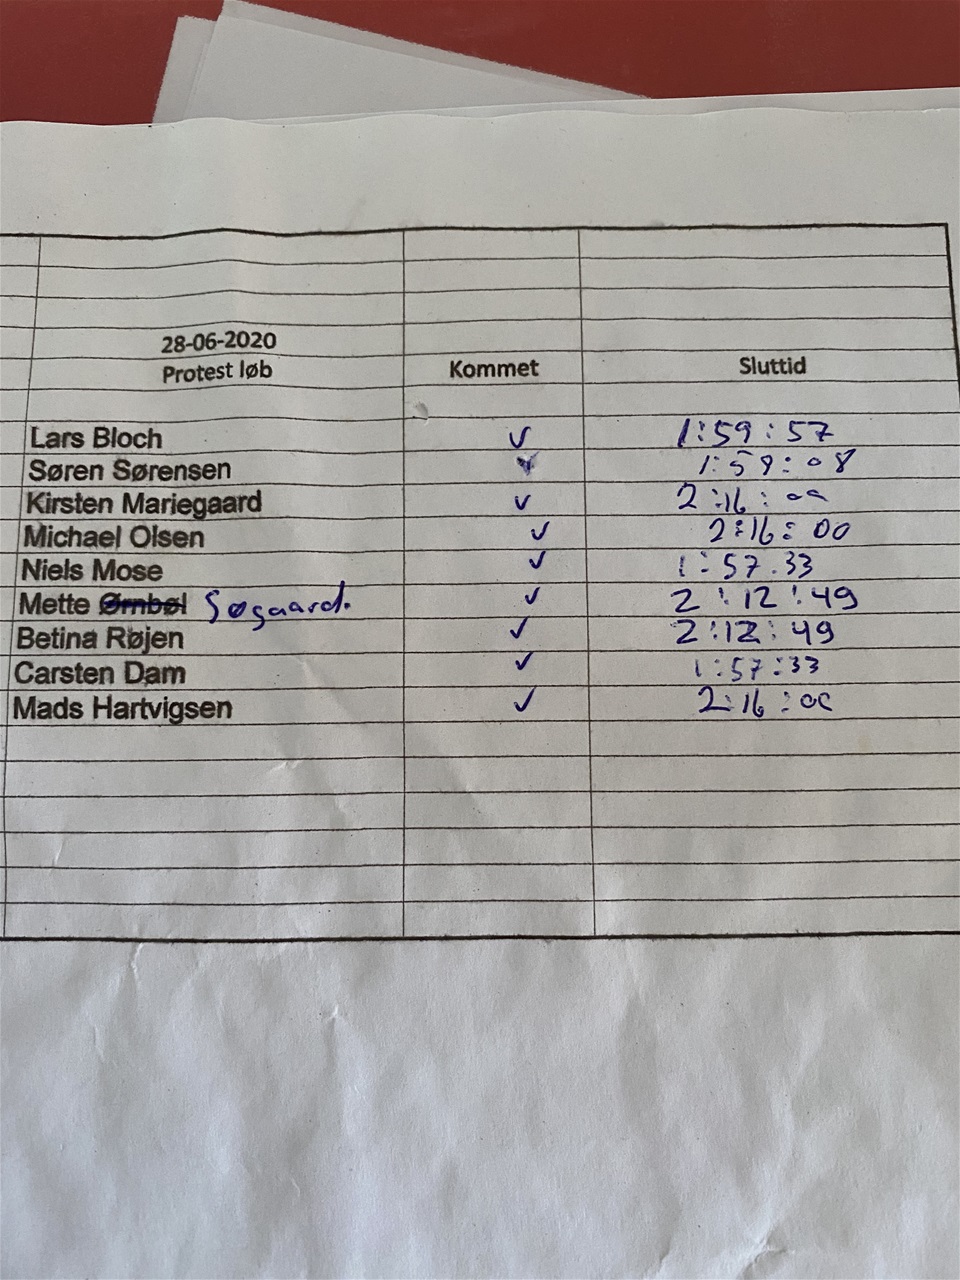 28-06-2020
Protest løb Kommet Sluttid
Lars Bloch ✓ 1:59:57
Søren Sørensen ✓ 1:59:08
Kirsten Mariegaard ✓ 2:16:00
Michael Olsen ✓ 2:16:00
Niels Mose ✓ 1:57.33
Mette Ørnbøl Søgaard. ✓ 2:12:49
Betina Røjen ✓ 2:12:49
Carsten Dam ✓ 1:57:33
Mads Hartvigsen ✓ 2:16:00